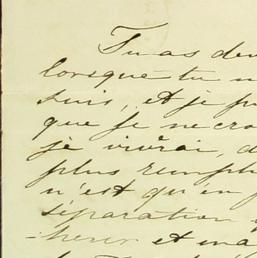 Tu as de
lorsque tu n
suis, et je pu
que je ne cro
je vivrai, d
plus rempli
n'est qu'en p
séparation
-herer et ma